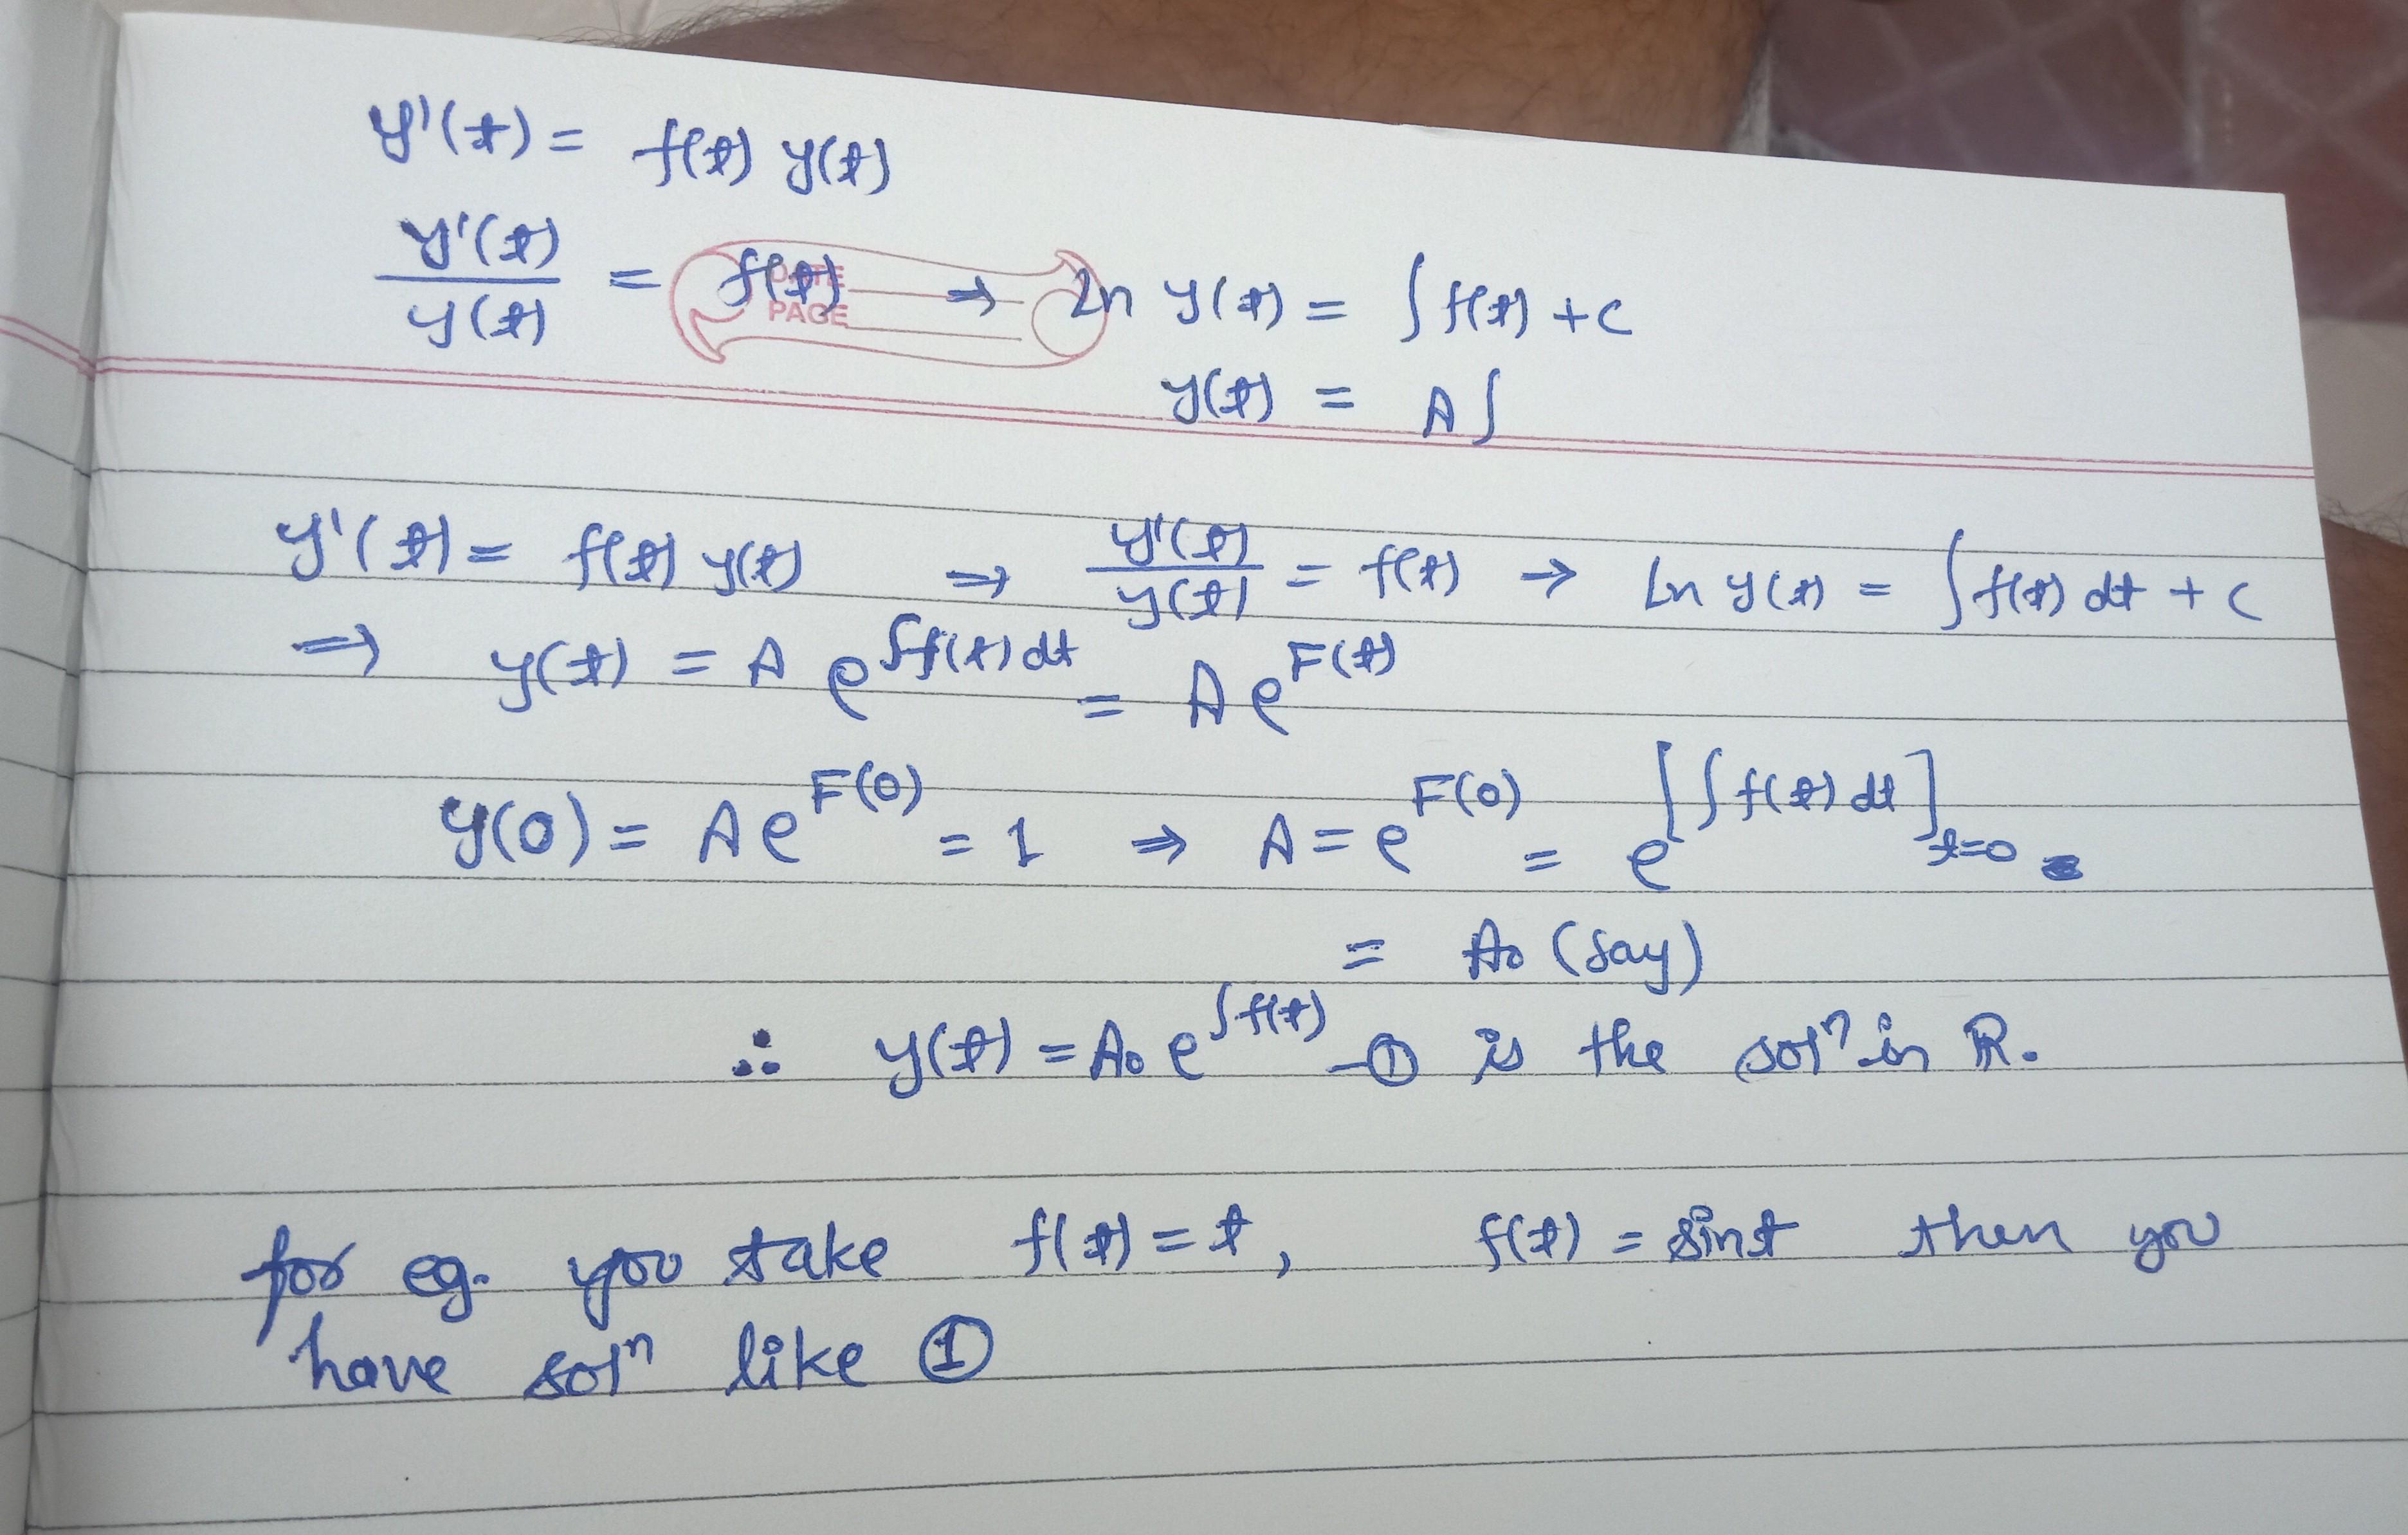 y'(t) = f(t) y(t)
y'(t)/y(t) = f(t) → ln y(t) = ∫ f(t) + c
DATE
PAGE
y(t) = A ∫
y'(t) = f(t) y(t) ⇒ y'(t)/y(t) = f(t) → ln y(t) = ∫ f(t) dt + c
⇒ y(t) = A e^{∫f(t) dt} = A e^{F(t)}
y(0) = A e^{F(0)} = 1 ⇒ A = e^{F(0)} = e^{[∫ f(t) dt]_{t=0}}
= A₀ (say)
∴ y(t) = A₀ e^{∫f(t)} —① is the solⁿ in R.
for eg. you take f(t) = t, f(t) = sint then you
have solⁿ like ①